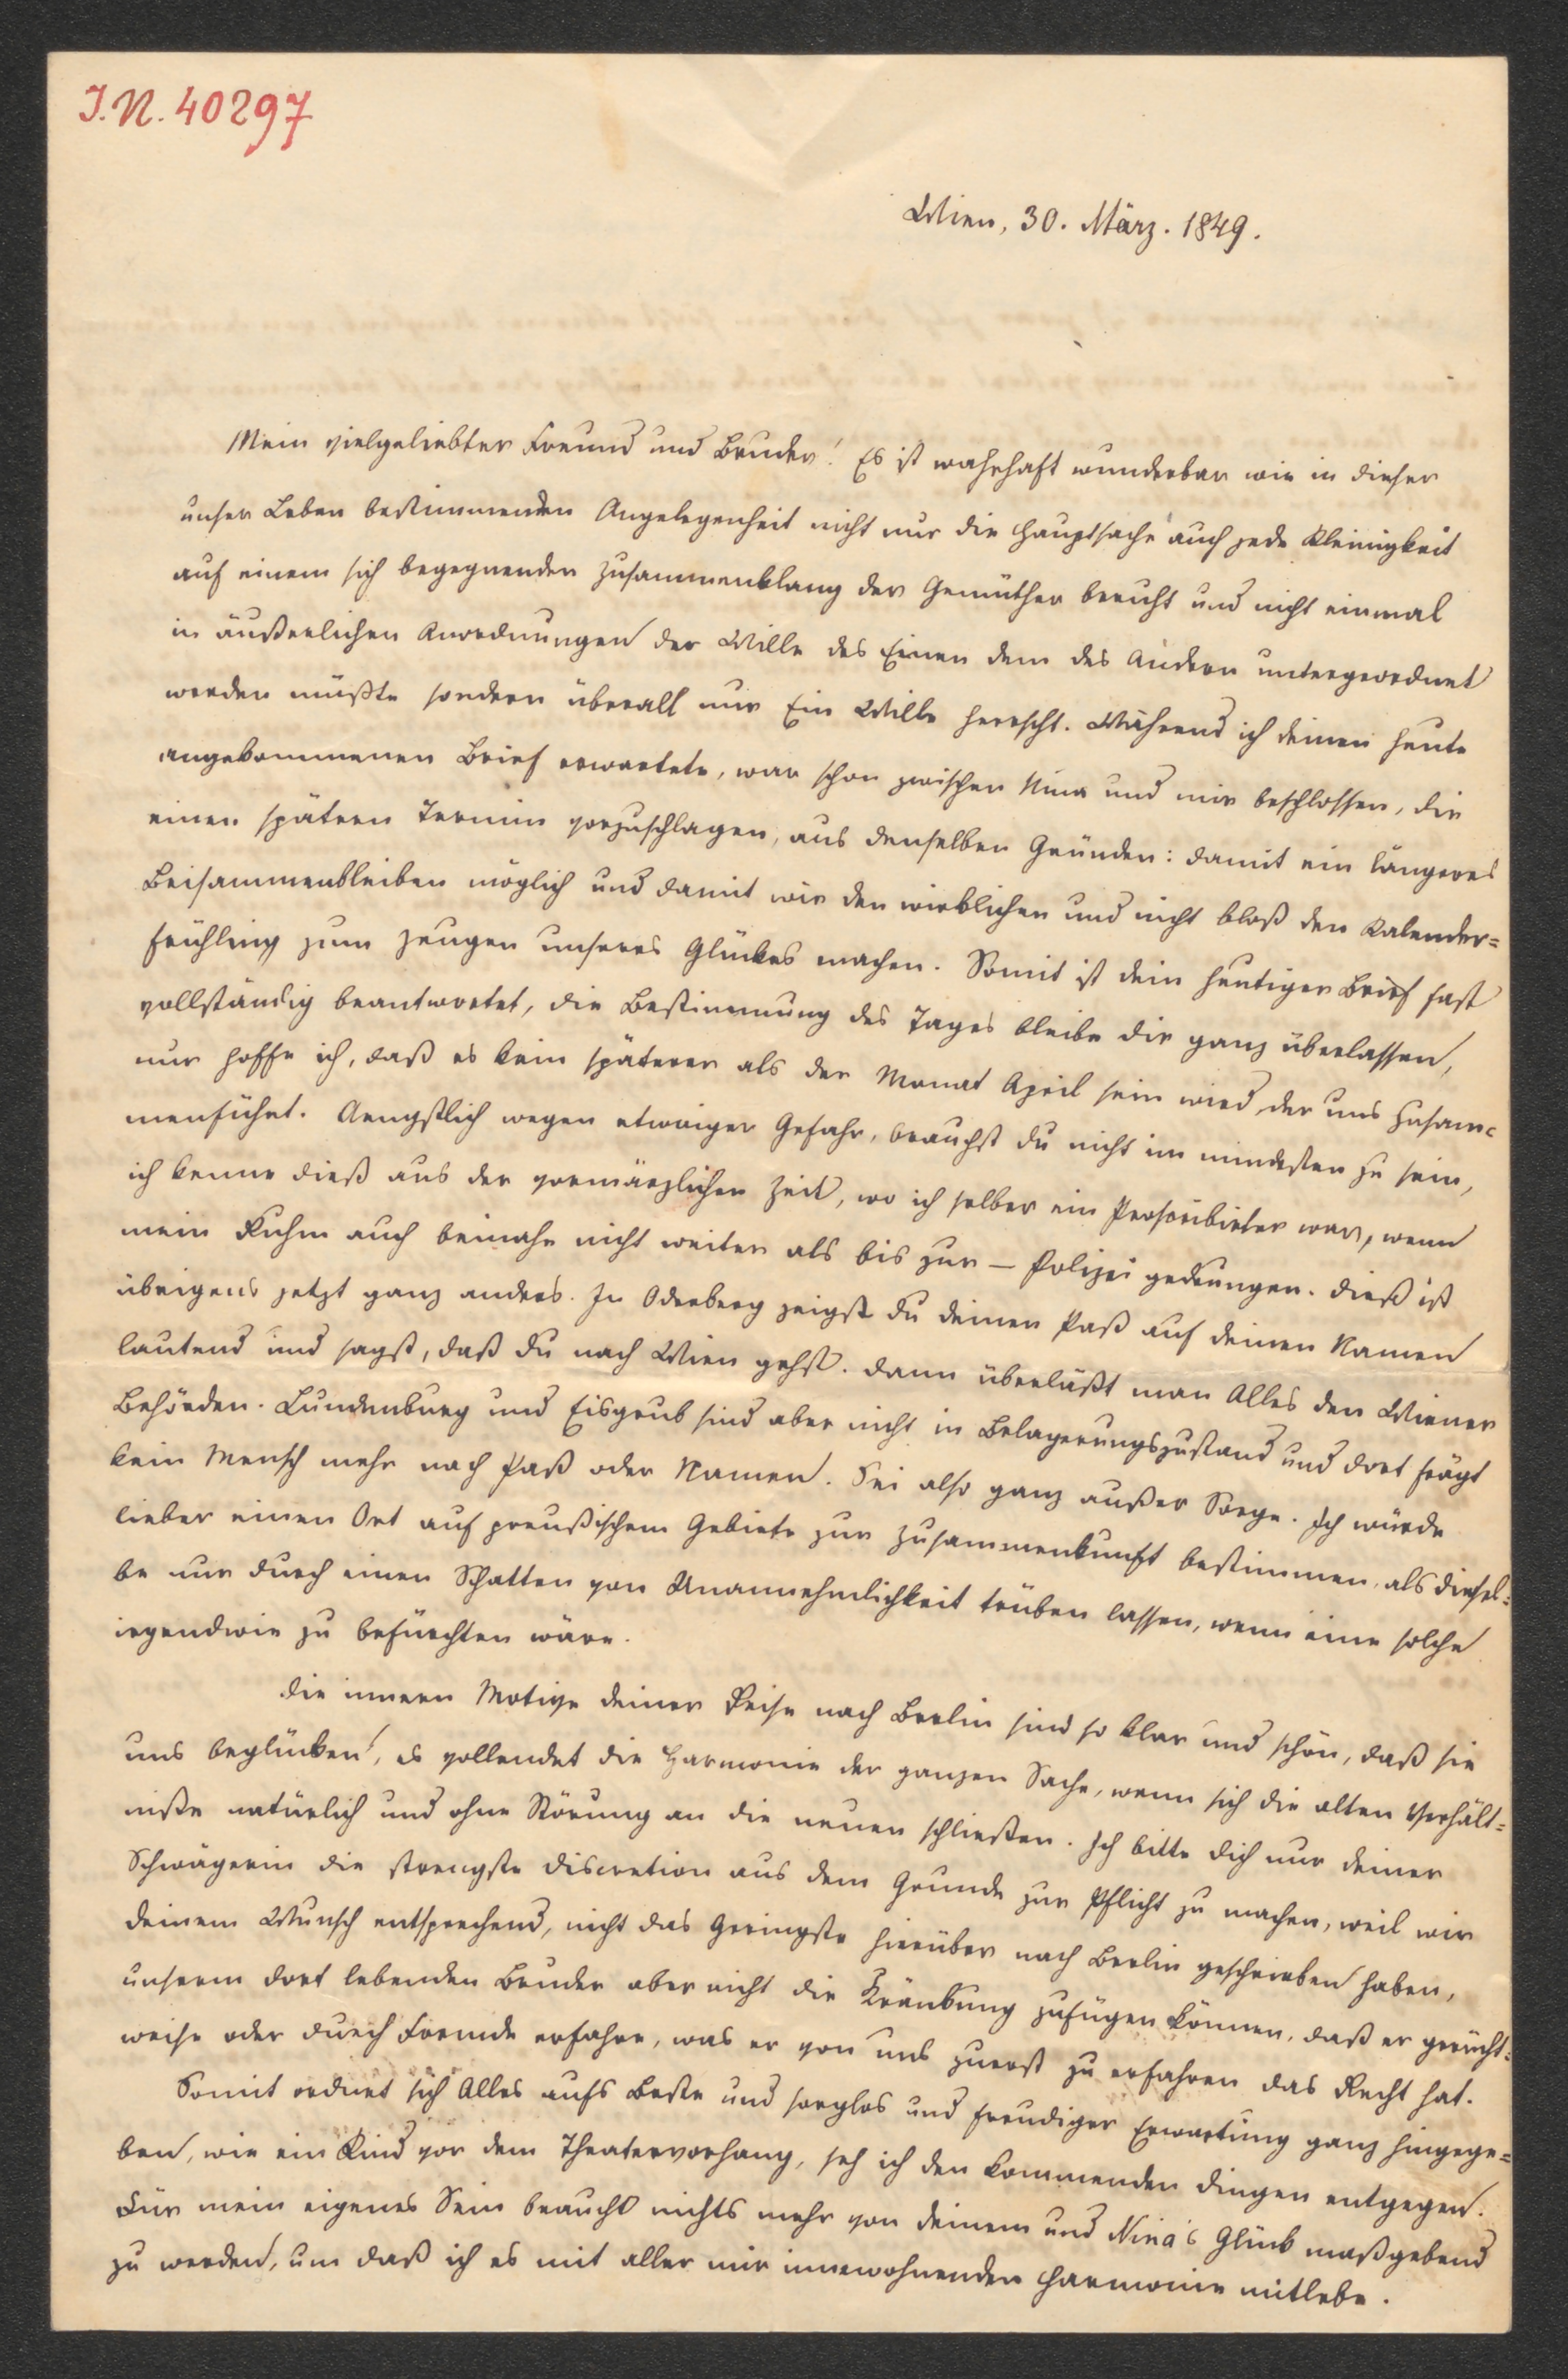 I.N. 40297
Wien, 30. März. 1849.
Mein vielgeliebter Freund und Bruder! Es ist wahrhaft wunderbar wie in dieser
unser Leben bestimmenden Angelegenheit nicht nur die Hauptsache auch jede Kleinigkeit
auf einem sich begegnenden Zusammenklang der Gemüther beruht und nicht einmal
in äußerlichen Anordnungen der Wille des Einen dem des Andern untergeordnet
werden müßte sondern überall nur Ein Wille herrscht. Während ich deinen heute
angekommenen Brief erwartete, war schon zwischen Nina und mir beschlossen, dir
einen spätern Termin vorzuschlagen, aus denselben Gründen: damit ein längeres
Beisammenbleiben möglich und damit wir den wirklichen und nicht bloß den Kalender=
frühling zum Zeugen unseres Glückes machen. Somit ist dein heutiger Brief fast
vollständig beantwortet, die Bestimmung des Tages bleibe dir ganz überlassen,
nur hoffe ich, daß es kein späterer als der Monat April sein wird, der uns zusam=
menführt. Aengstlich wegen etwaiger Gefahr, brauchst du nicht im mindesten zu sein,
ich kenne dieß aus der vormärzlichen Zeit, wo ich selber ein Proscribirter war, wenn
mein Ruhm auch beinahe nicht weiter als bis zur – Polizei gedrungen. Dieß ist
übrigens jetzt ganz anders. In Oderberg zeigst du deinen Paß auf deinen Namen
lautend und sagst, daß du nach Wien gehst. Dann überläßt man Alles den Wiener
Behörden. Lundenburg und Eisgrub sind aber nicht in Belagerungszustand und dort frägt
kein Mensch mehr nach Paß oder Namen. Sei also ganz außer Sorge. Ich würde
lieber einen Ort auf preußischem Gebiete zur Zusammenkunft bestimmen, als diesel=
be nur durch einen Schatten von Unannehmlichkeit trüben lassen, wenn eine solche
irgendwie zu befürchten wäre.
Die innern Motive deiner Reise nach Berlin sind so klar und schön, daß sie
uns beglücken, es vollendet die Harmonie der ganzen Sache, wenn sich die alten Verhält=
niße natürlich und ohne Störung an die neuen schließen. Ich bitte dich nur deiner
Schwägerin die strengste Discretion aus dem Grunde zur Pflicht zu machen, weil wir
deinem Wunsch entsprechend, nicht das Geringste hierüber nach Berlin geschrieben haben,
unserm dort lebenden Bruder aber nicht die Kränkung zufügen können, daß er gerücht=
weise oder durch Fremde erfahre, was er von uns zuerst zu erfahren das Recht hat.
Somit ordnet sich Alles aufs Beste und sorglos und freudiger Erwartung ganz hingege=
ben, wie ein Kind vor dem Theatervorhang, seh ich den kommenden Dingen entgegen.
Für mein eigenes Sein braucht nichts mehr von deinem und Nina's Glück maßgebend
zu werden, um daß ich es mit aller mir innewohnenden Harmonie mitlebe.